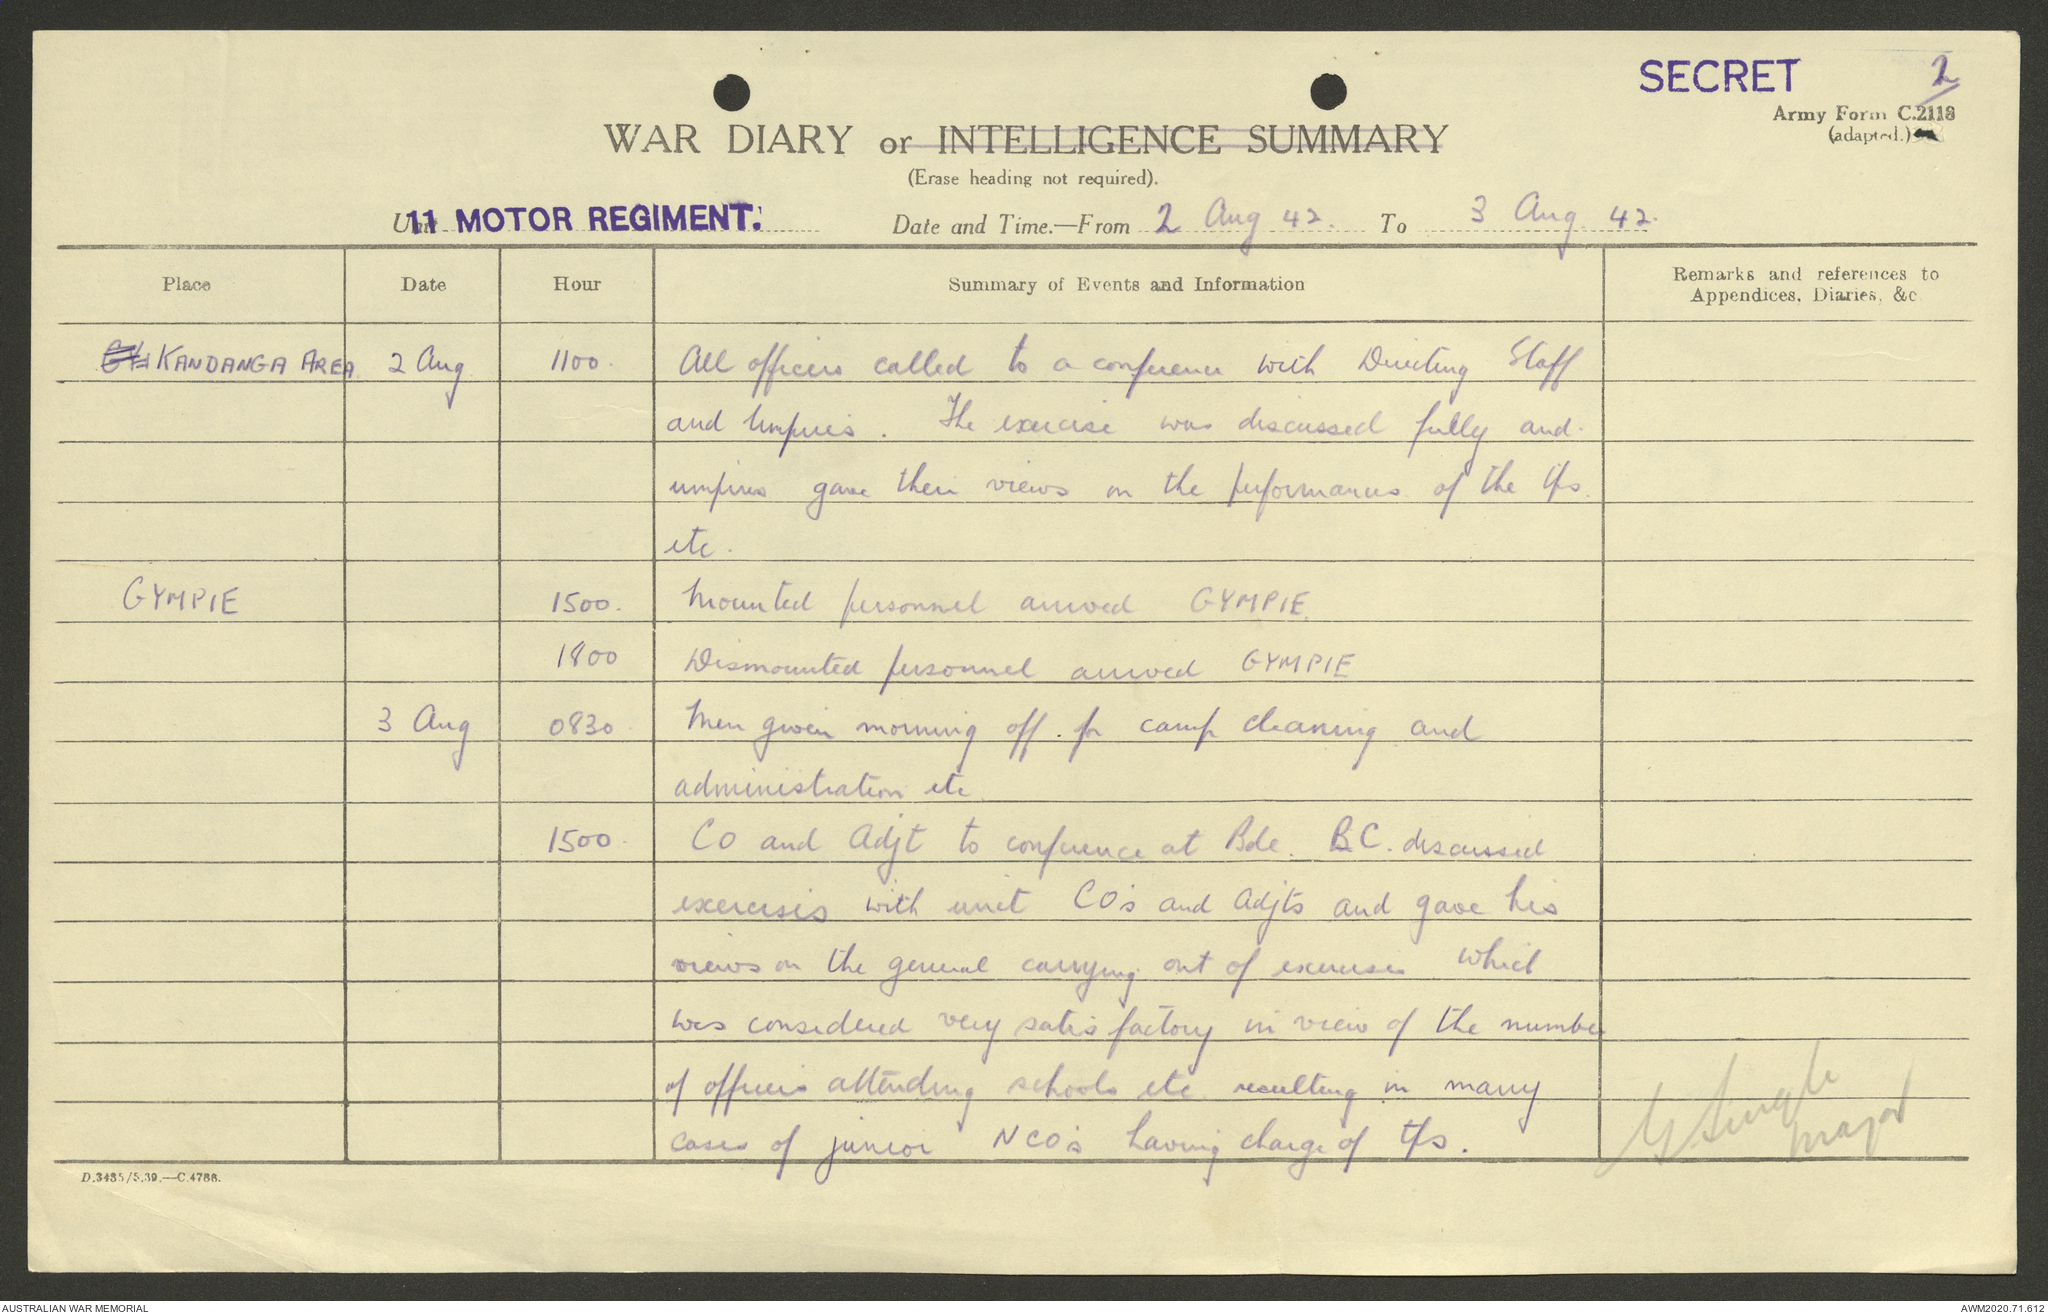 SECRET
2
Army Form C.2118
(adapted.)
WAR DIARY or INTELLIGENCE SUMMARY
(Erase heading not required).
Unit 11 MOTOR REGIMENT. Date and Time.—From 2 Aug 42. To 3 Aug. 42.
Place Date Hour Summary of Events and Information Remarks and references to Appendices, Diaries, &c
KANDANGA AREA 2 Aug 1100. All officers called to a conference with Directing Staff
and Umpires. The exercise was discussed fully and
umpires gave their views on the performances of the tps.
etc.
GYMPIE 1500. Mounted personnel arrived GYMPIE.
1800 Dismounted personnel arrived GYMPIE
3 Aug 0830 Men given morning off. for camp cleaning and
administration etc
1500. CO and Adjt to conference at Bde. BC. discussed
exercises with unit CO's and Adjts and gave his
views on the general carrying out of exercises which
was considered very satisfactory in view of the number
of officers attending schools etc resulting in many
cases of junior NCO's having charge of tps.
Major
D.3485/5.39.—C.4788.
AUSTRALIAN WAR MEMORIAL AWM2020.71.612